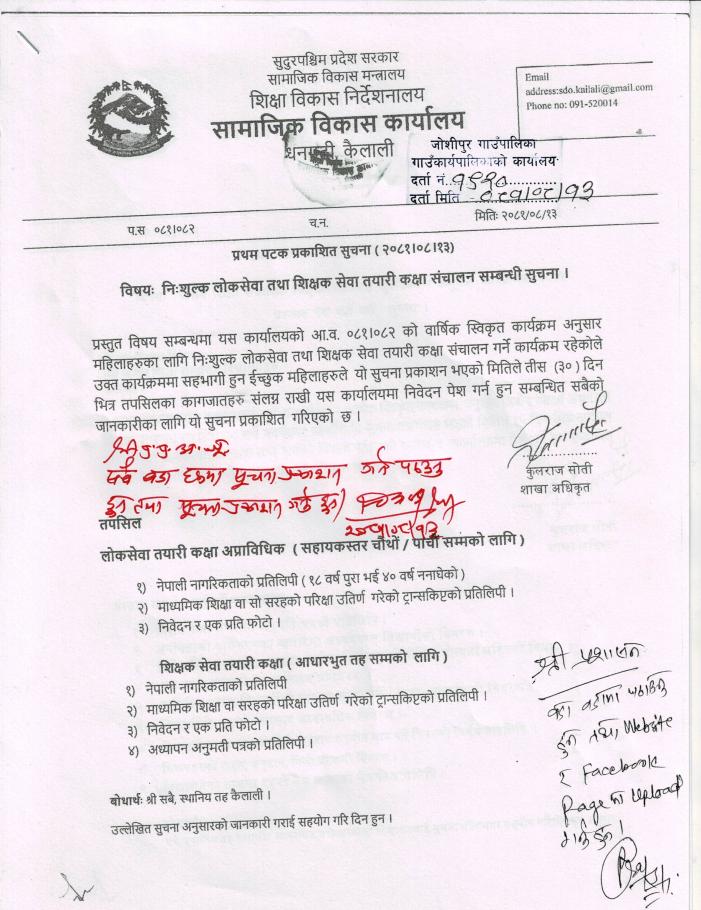 सुदुरपश्चिम प्रदेश सरकार
सामाजिक विकास मन्त्रालय
शिक्षा विकास निर्देशनालय
सामाजिक विकास कार्यालय
धनगढी, कैलाली
Email
address:sdo.kailali@gmail.com
Phone no: 091-520014
जोशीपुर गाउँपालिका
गाउँकार्यपालिकाको कार्यालय
दर्ता नं.
दर्ता मिति
प.स ०८१।०८२
च.न.
मितिः २०८१/०८/१३
प्रथम पटक प्रकाशित सुचना ( २०८१।०८।१३)
विषयः निःशुल्क लोकसेवा तथा शिक्षक सेवा तयारी कक्षा संचालन सम्बन्धी सुचना ।
प्रस्तुत विषय सम्बन्धमा यस कार्यालयको आ.व. ०८१।०८२ को वार्षिक स्विकृत कार्यक्रम अनुसार
महिलाहरुका लागि निःशुल्क लोकसेवा तथा शिक्षक सेवा तयारी कक्षा संचालन गर्ने कार्यक्रम रहेकोले
उक्त कार्यक्रममा सहभागी हुन ईच्छुक महिलाहरुले यो सुचना प्रकाशन भएको मितिले तीस (३०) दिन
भित्र तपसिलका कागजातहरु संलग्न राखी यस कार्यालयमा निवेदन पेश गर्न हुन सम्बन्धित सबैको
जानकारीका लागि यो सुचना प्रकाशित गरिएको छ ।
कुलराज सोती
शाखा अधिकृत
तपसिल
लोकसेवा तयारी कक्षा अप्राविधिक ( सहायकस्तर चौथों / पाचौं सम्मको लागि )
१) नेपाली नागरिकताको प्रतिलिपी ( १८ वर्ष पुरा भई ४० वर्ष ननाघेको )
२) माध्यमिक शिक्षा वा सो सरहको परिक्षा उतिर्ण गरेको ट्रान्सकिप्टको प्रतिलिपी ।
३) निवेदन र एक प्रति फोटो ।
शिक्षक सेवा तयारी कक्षा ( आधारभुत तह सम्मको लागि )
१) नेपाली नागरिकताको प्रतिलिपी
२) माध्यमिक शिक्षा वा सरहको परिक्षा उतिर्ण गरेको ट्रान्सकिप्टको प्रतिलिपी ।
३) निवेदन र एक प्रति फोटो ।
४) अध्यापन अनुमती पत्रको प्रतिलिपी ।
श्री प्रशासन
वडा वडामा पठाउनु
हुन तथा Website
र Facebook
Page मा Upload
गर्नु हुन ।
बोधार्थः श्री सबै, स्थानिय तह कैलाली ।
उल्लेखित सुचना अनुसारको जानकारी गराई सहयोग गरि दिन हुन ।